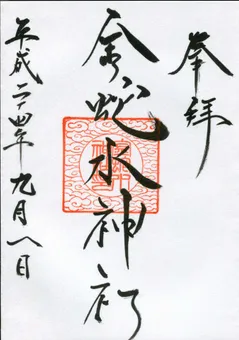 奉拝
金蛇水神社
平成二十四年九月八日